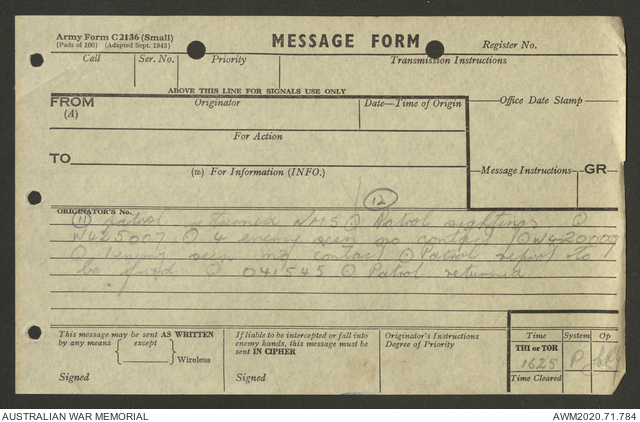 Army Form C2136 (Small)
(Pads of 100) (Adapted Sept. 1943)
MESSAGE FORM
Register No.
Call
Ser. No.
Priority
Transmission Instructions
ABOVE THIS LINE FOR SIGNALS USE ONLY
FROM
(A)
Originator
Date—Time of Origin
Office Date Stamp
For Action
TO
(w) For Information (INFO.)
Message Instructions
GR
12
ORIGINATOR'S No.
11 patrol returned NMS Patrol sightings
W425007 4 enemy seen no contact W420009
1 enemy seen no contact Patrol report to
be fwded 041545 Patrol returned
This message may be sent AS WRITTEN
by any means { except } Wireless
Signed
If liable to be intercepted or fall into
enemy hands, this message must be
sent IN CIPHER
Signed
Originator's Instructions
Degree of Priority
Time
System
Op
THI or TOR
1625
P
Time Cleared
AUSTRALIAN WAR MEMORIAL
AWM2020.71.784